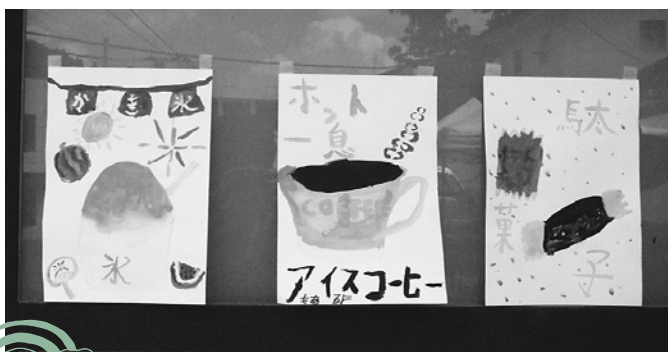 かき氷
氷
ホット
一息
COFFEE
アイスコーヒー
駄
菓
子